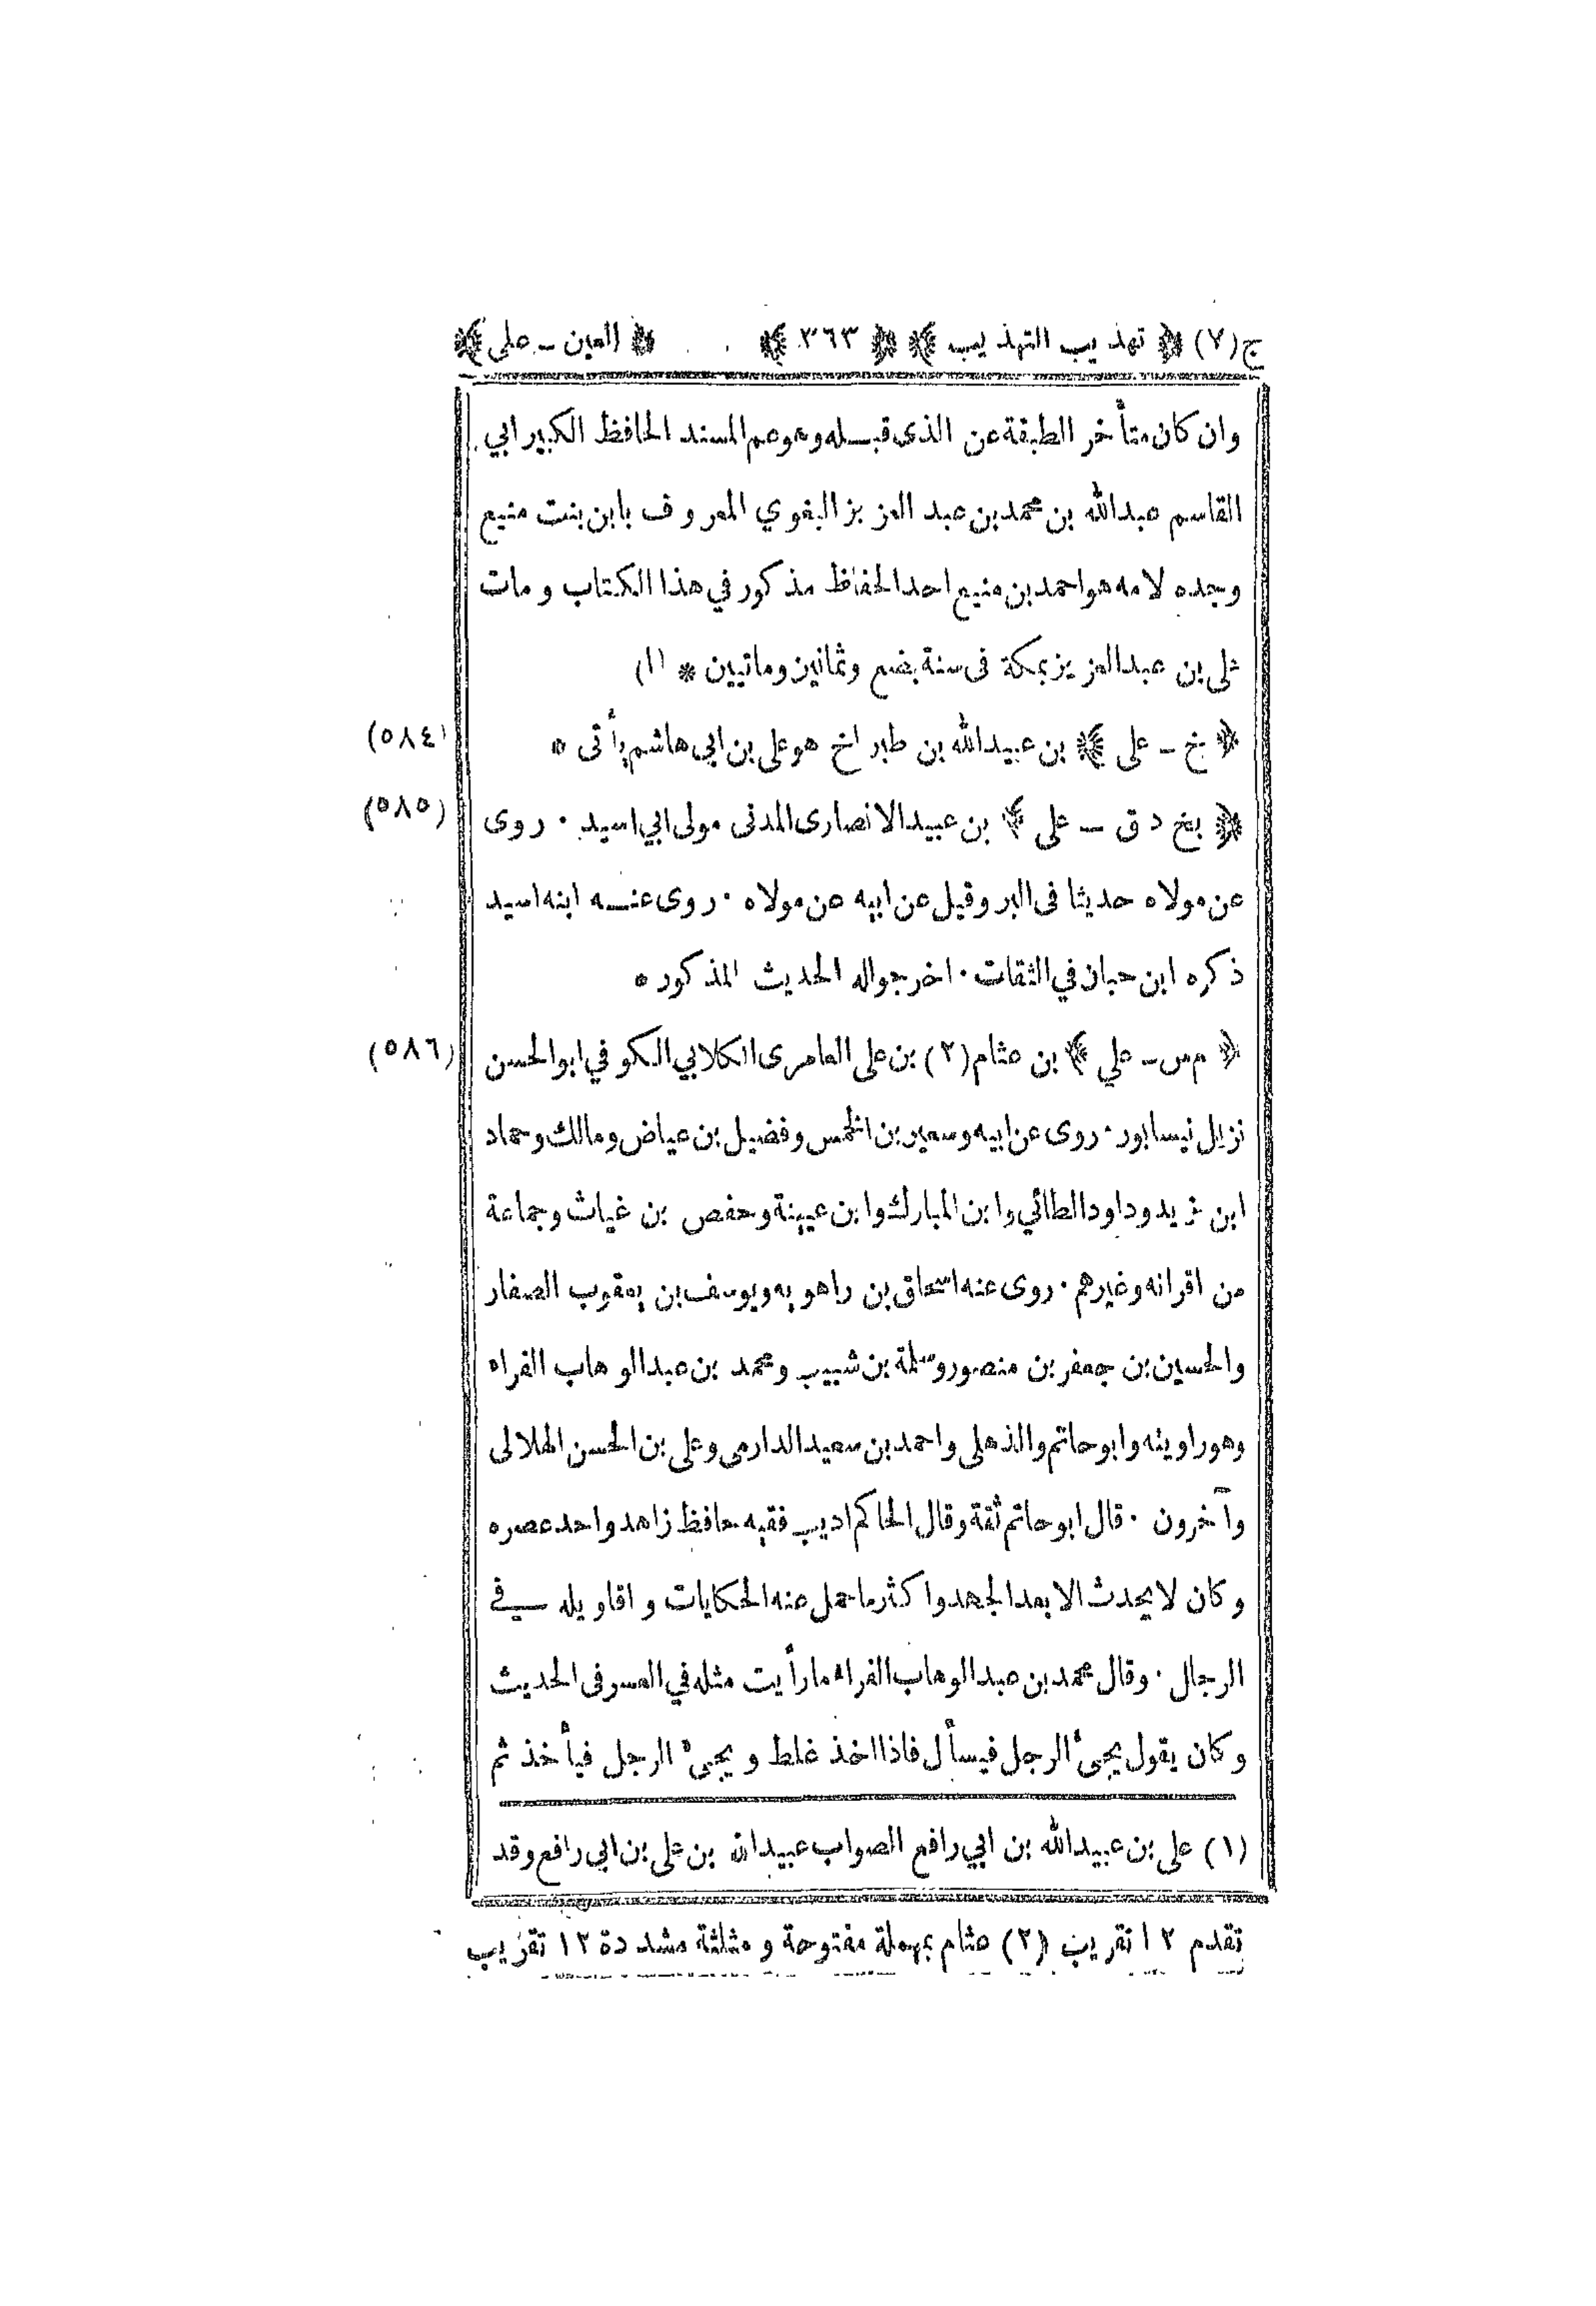 ج(٧) ﴿ تهذيب التهذيب ﴾ ﴿ ٣٦٣ ﴾ ﴿ العين - على ﴾
وان كان متأخر الطبقة عن الذى قبله وهو عم المسند الحافظ الكبير ابي
القاسم عبدالله بن محمد بن عبد العزيز البغوي المعروف بابن بنت منيع
وجده لامه هو احمد بن منيع احد الحفاظ مذكور في هذا الكتاب ومات
على بن عبدالعزيز بمكة فى سنة بضع وثمانين وماتيين * (١)
﴿ بخ - على ﴾ بن عبيدالله بن طبراخ هو على بن ابى هاشم يأتى ٥ (٥٨٤)
﴿ بخ د ق - على ﴾ بن عبيد الانصارى المدنى مولى ابي اسيد . روى (٥٨٥)
عن مولاه حديثا فى البر وقيل عن ابيه عن مولاه . روى عنه ابنه اسيد
ذكره ابن حبان في الثقات . اخرجوا له الحديث المذكور ٥
﴿ م س - علي ﴾ بن عثام (٢) بن على العامرى الكلابي الكوفي ابو الحسن (٥٨٦)
نزيل نيسابور . روى عن ابيه وسعير بن الخمس وفضيل بن عياض ومالك وحماد
ابن زيد وداود الطائي وابن المبارك وابن عيينة وحفص بن غياث وجماعة
من اقرانه وغيرهم . روى عنه اسحاق بن راهويه ويوسف بن يعقوب الصفار
والحسين بن جعفر بن منصور وسلمة بن شبيب ومحمد بن عبدالوهاب الفراء
وهو راويته وابو حاتم والذهلى واحمد بن سعيد الدارمى وعلى بن الحسن الهلالى
وآخرون . قال ابو حاتم ثقة وقال الحاكم اديب فقيه حافظ زاهد واحد عصره
وكان لا يحدث الا بعد الجهد واكثر ما حمل عنه الحكايات واقاويله في
الرجال . وقال محمد بن عبد الوهاب الفراء ما رأيت مثله في العسر فى الحديث
وكان يقول يجىء الرجل فيسأل فاذا اخذ غلط ويجىء الرجل فيأخذ ثم
(١) على بن عبيدالله بن ابي رافع الصواب عبيدالله بن على بن ابى رافع وقد
تقدم ١٢ تقريب (٢) عثام بمهملة مفتوحة ومثلثة مشددة ١٢ تقريب